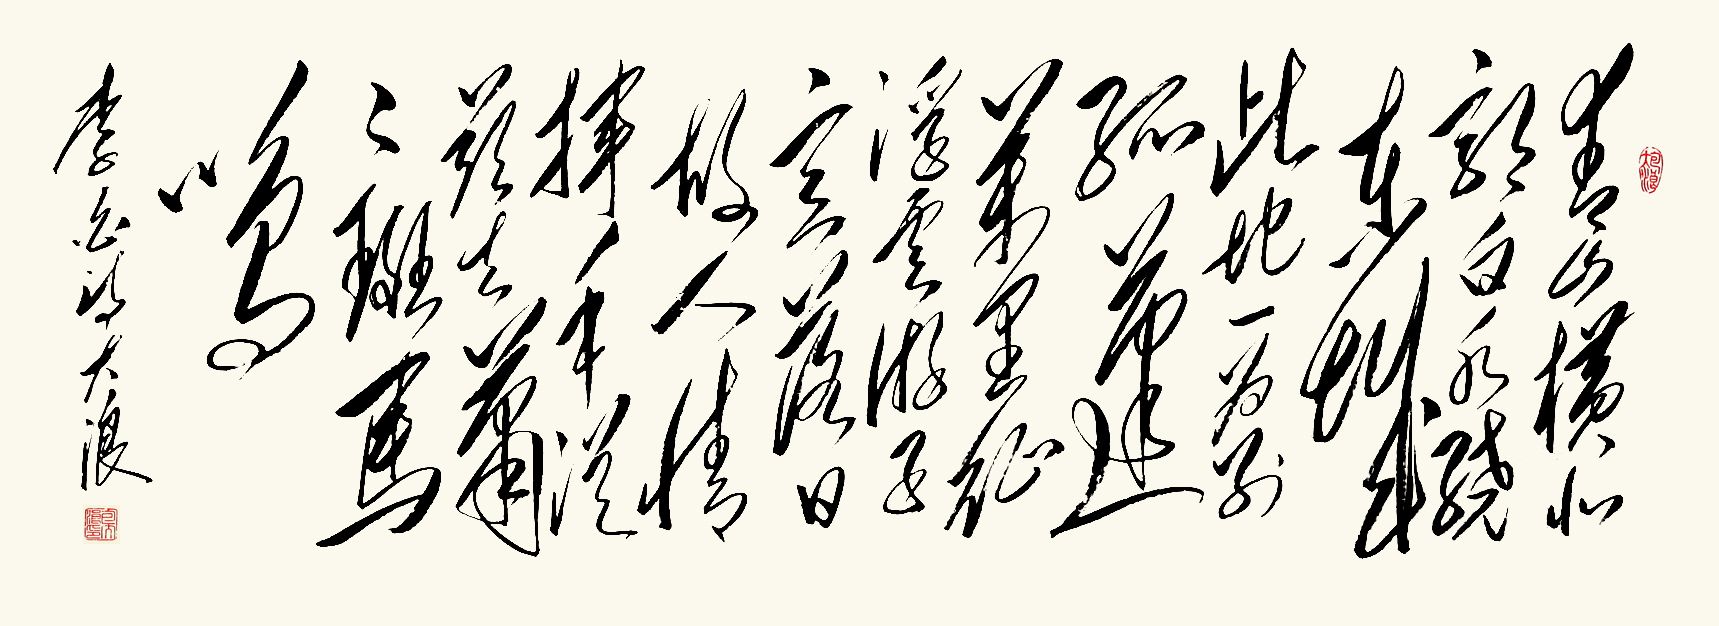 青山横北
郭白水绕
东城
此地一为别
孤蓬
萬里征
浮雲游子
意落日
故人情
揮手從
兹去蕭
〻班馬
鸣
李白诗大浪